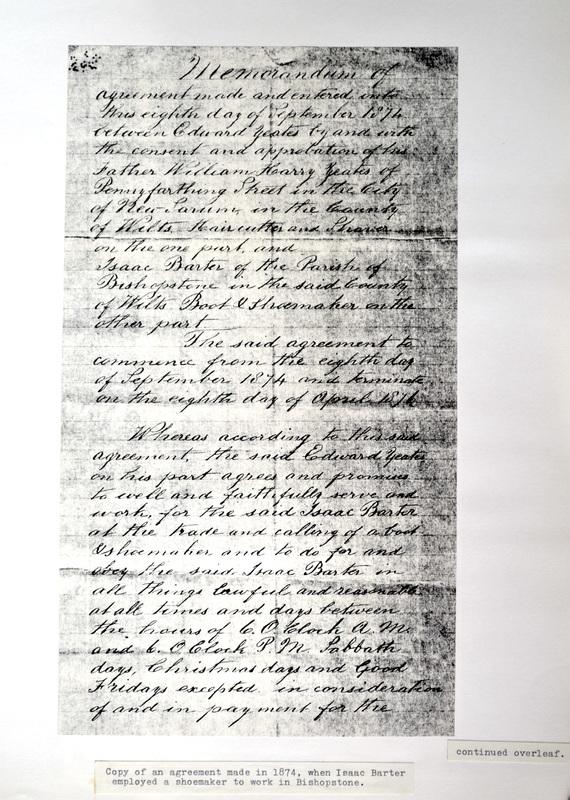 Memorandum of
agreement made and entered into
this eighth day of September 1874
between Edward Yeates by and with
the consent and approbation of his
Father William Harry Yeates of
Pennyfarthing Street in the City
of New Sarum, in the County
of Wilts, Haircutter and Shaver
on the one part, and
Isaac Barter of the Parish of
Bishopstone in the said County
of Wilts Boot & Shoemaker on the
other part
The said agreement to
commence from the eighth day
of September 1874 and terminate
on the eighth day of April
Whereas according to this said
agreement, the said Edward Yeates
on his part agrees and promises
to well and faithfully serve and
work, for the said Isaac Barter
at the trade and calling of a boot
& shoemaker and to do for and
obey the said Isaac Barter in
all things lawful and reasonable
at all times and days between
the hours of 6. O Clock A. M.
and 6. O Clock P. M. Sabbath
days, Christmas days and Good
Fridays excepted in consideration
of and in payment for the
continued overleaf.
Copy of an agreement made in 1874, when Isaac Barter
employed a shoemaker to work in Bishopstone.